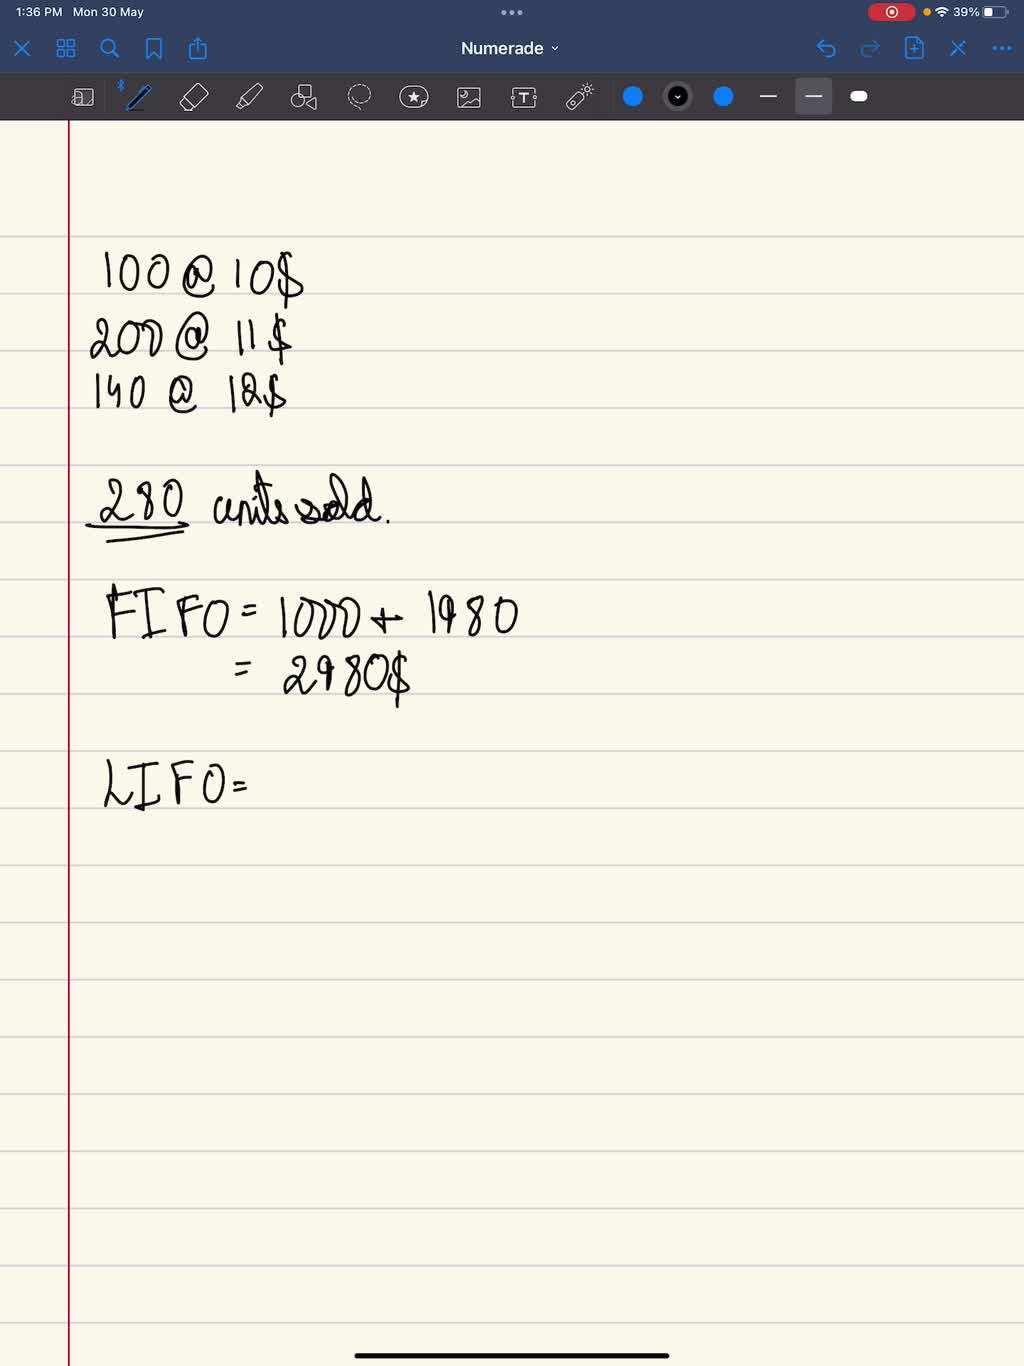 1:36 PM Mon 30 May
39%
Numerade
T
100 @ 10$
200 @ 11$
140 @ 12$
280 units sold.
FIFO = 1000 + 1980
= 2980$
LIFO =